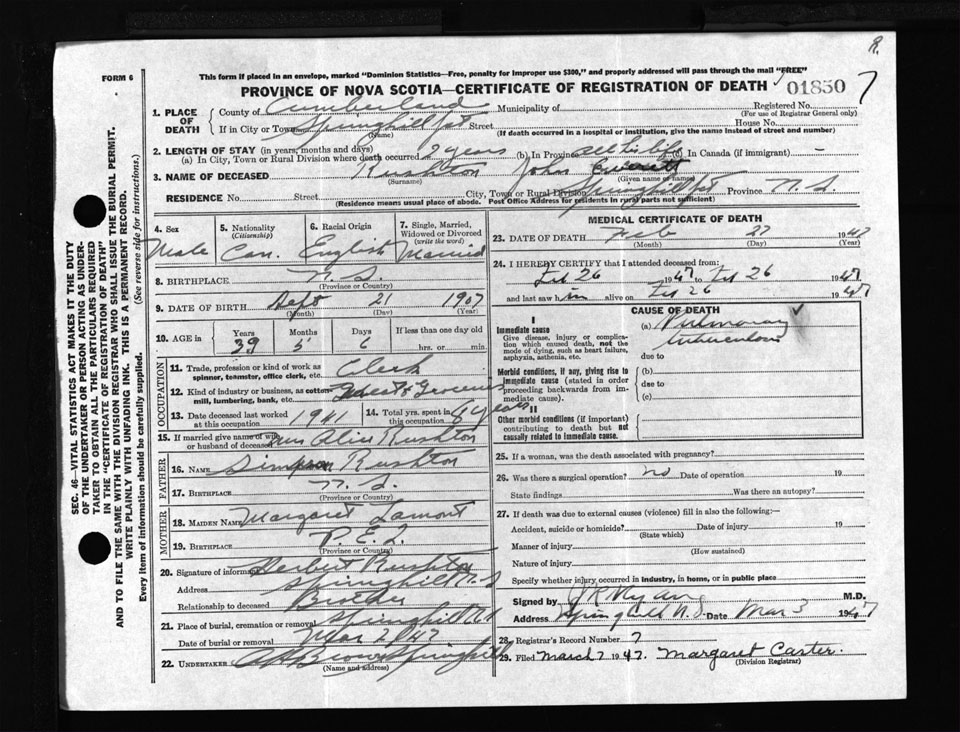 R.
FORM 6
This form if placed in an envelope, marked "Dominion Statistics—Free, penalty for improper use $300," and properly addressed will pass through the mail "FREE"
PROVINCE OF NOVA SCOTIA—CERTIFICATE OF REGISTRATION OF DEATH 01850 7
1. PLACE OF DEATH County of Cumberland Municipality of Registered No.
(For use of Registrar General only)
If in City or Town Springhill Street House No.
(Name) (If death occurred in a hospital or institution, give the name instead of street and number)
2. LENGTH OF STAY (in years, months and days)
(a) In City, Town or Rural Division where death occurred 9 years (b) In Province all his life (d) In Canada (if immigrant) —
3. NAME OF DECEASED Rushton John
(Surname) (Given name or names)
RESIDENCE No. Street City, Town or Rural Division Springhill Province N. S.
(Residence means usual place of abode. Post Office Address for residents in rural parts not sufficient)
4. Sex Male
5. Nationality (Citizenship) Can.
6. Racial Origin English
7. Single, Married, Widowed or Divorced (write the word) Married
8. BIRTHPLACE N. S.
(Province or Country)
9. DATE OF BIRTH Sept 21 1907
(Month) (Day) (Year)
10. AGE in Years 39 Months 5 Days 6 If less than one day hrs. or min.
OCCUPATION
11. Trade, profession or kind of work as spinner, teamster, office clerk, etc. Clerk
12. Kind of industry or business, as cotton mill, lumbering, bank, etc. Groceries
13. Date deceased last worked at this occupation 1941
14. Total yrs. spent in this occupation 6 years
15. If married give name of wife or husband of deceased Alice Rushton
FATHER
16. NAME Simpson Rushton
17. BIRTHPLACE N. S.
(Province or Country)
MOTHER
18. MAIDEN NAME Margaret Lamont
19. BIRTHPLACE P. E. I.
(Province or Country)
20. Signature of informant Herbert Rushton
Address Springhill N. S
Relationship to deceased Brother
21. Place of burial, cremation or removal Springhill
Date of burial or removal Mar 2 47
22. UNDERTAKER Brown Springhill
(Name and address)
MEDICAL CERTIFICATE OF DEATH
23. DATE OF DEATH Feb 27 1947
(Month) (Day) (Year)
24. I HEREBY CERTIFY that I attended deceased from:
Feb 26 1947 to Feb 26 1947
and last saw him alive on Feb 26 1947
CAUSE OF DEATH
I
Immediate cause
Give disease, injury or complication which caused death, not the mode of dying, such as heart failure, asphyxia, asthenia, etc.
(a) Pulmonary tuberculosis
due to
Morbid conditions, if any, giving rise to immediate cause (stated in order proceeding backwards from immediate cause).
(b)
due to
(c)
II
Other morbid conditions (if important) contributing to death but not causally related to immediate cause.
25. If a woman, was the death associated with pregnancy?
26. Was there a surgical operation? no Date of operation 19
State findings Was there an autopsy?
27. If death was due to external causes (violence) fill in also the following:—
Accident, suicide or homicide? Date of injury 19
(State which)
Manner of injury
(How sustained)
Nature of injury
Specify whether injury occurred in industry, in home, or in public place
Signed by M.D.
Address Springhill N. S. Date Mar 3 1947
28. Registrar's Record Number 7
29. Filed March 7 1947. Margaret Carter.
(Division Registrar)
SEC. 46—VITAL STATISTICS ACT MAKES IT THE DUTY
OF THE UNDERTAKER OR PERSON ACTING AS UNDERTAKER
TO OBTAIN ALL THE PARTICULARS REQUIRED
IN THE "CERTIFICATE OF REGISTRATION OF DEATH"
AND TO FILE THE SAME WITH THE DIVISION REGISTRAR WHO SHALL ISSUE THE BURIAL PERMIT.
WRITE PLAINLY WITH UNFADING INK. THIS IS A PERMANENT RECORD.
Every item of information should be carefully supplied. (See reverse side for instructions.)